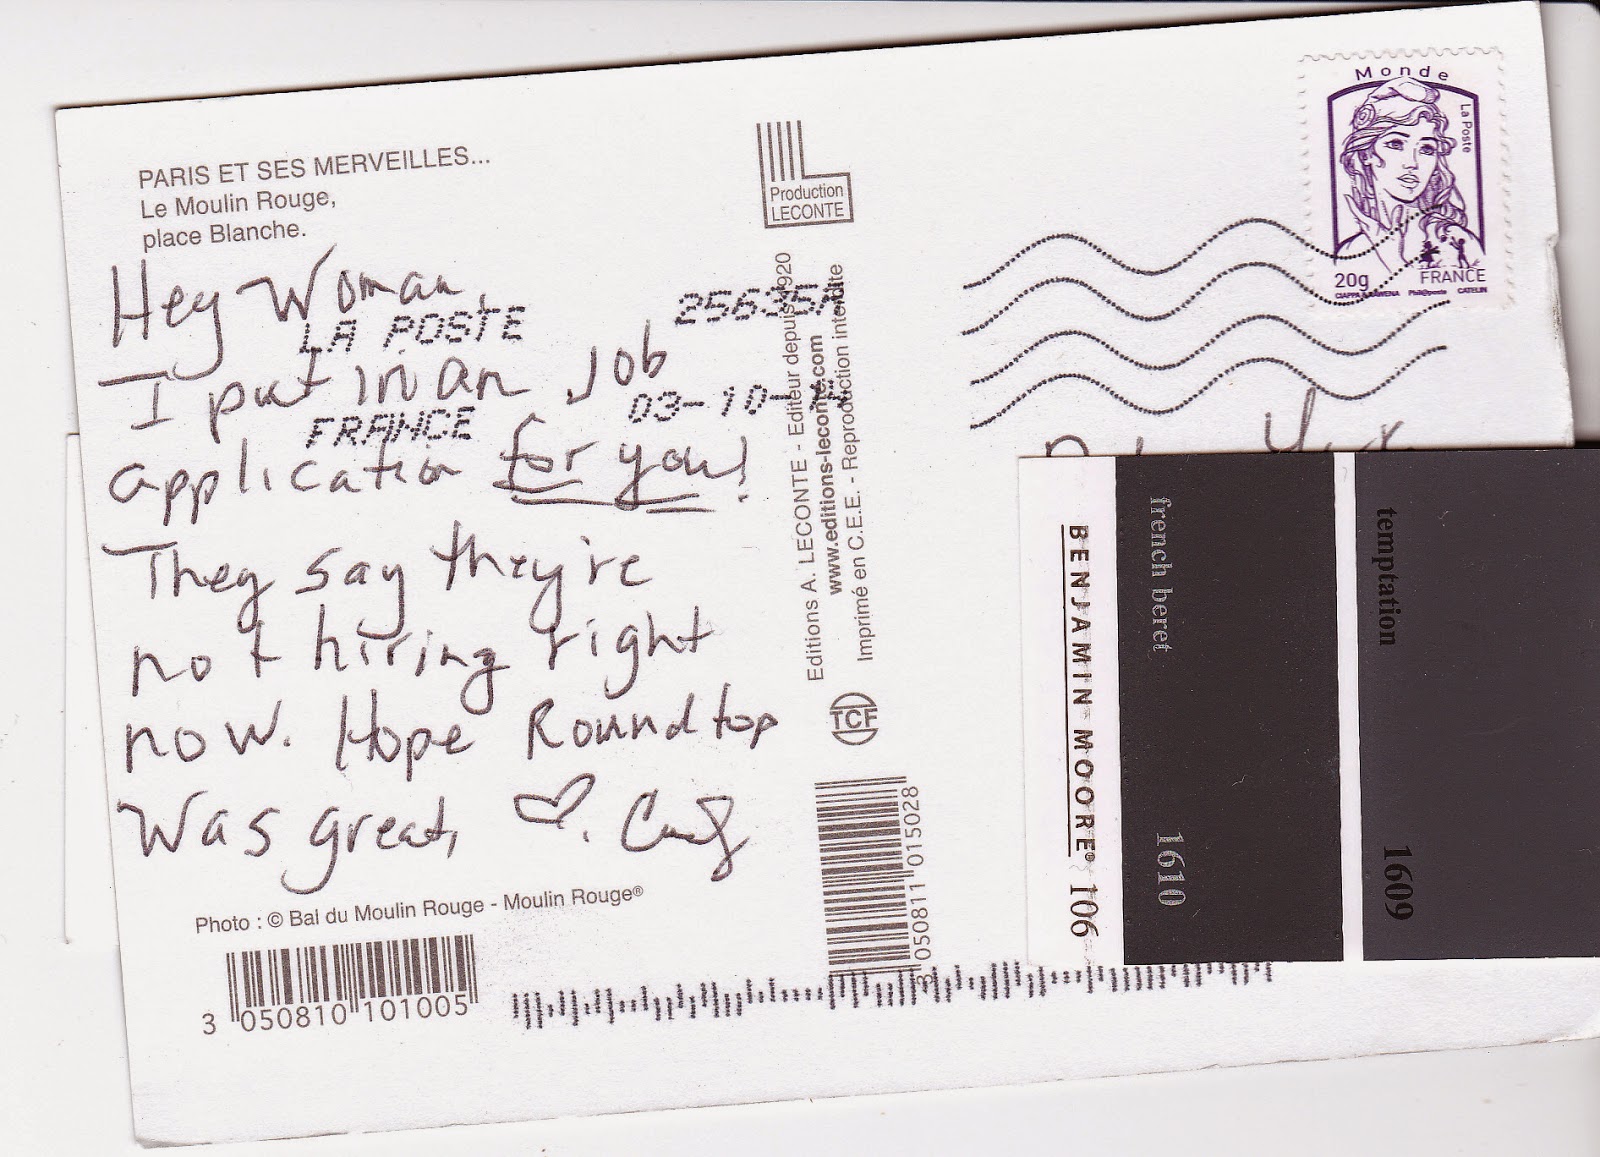 PARIS ET SES MERVEILLES...
Le Moulin Rouge,
place Blanche.
Hey Woman,
I put in an Job
application for you!
They say they're
not hiring right
now. Hope Roundtop
was great,
LA POSTE
FRANCE
03-10-
Photo : © Bal du Moulin Rouge - Moulin Rouge®
3 050810 101005
Production
LECONTE
Editions A. LECONTE - Editeur depuis 1920
www.editions-leconte.com
Imprimé en C.E.E. - Reproduction interdite
TCF
3 050811 015028
Monde
La Poste
20g
FRANCE
CIAPPA & KAWENA Phil@poste CATELIN
BENJAMIN MOORE® 106
french beret 1610
temptation 1609